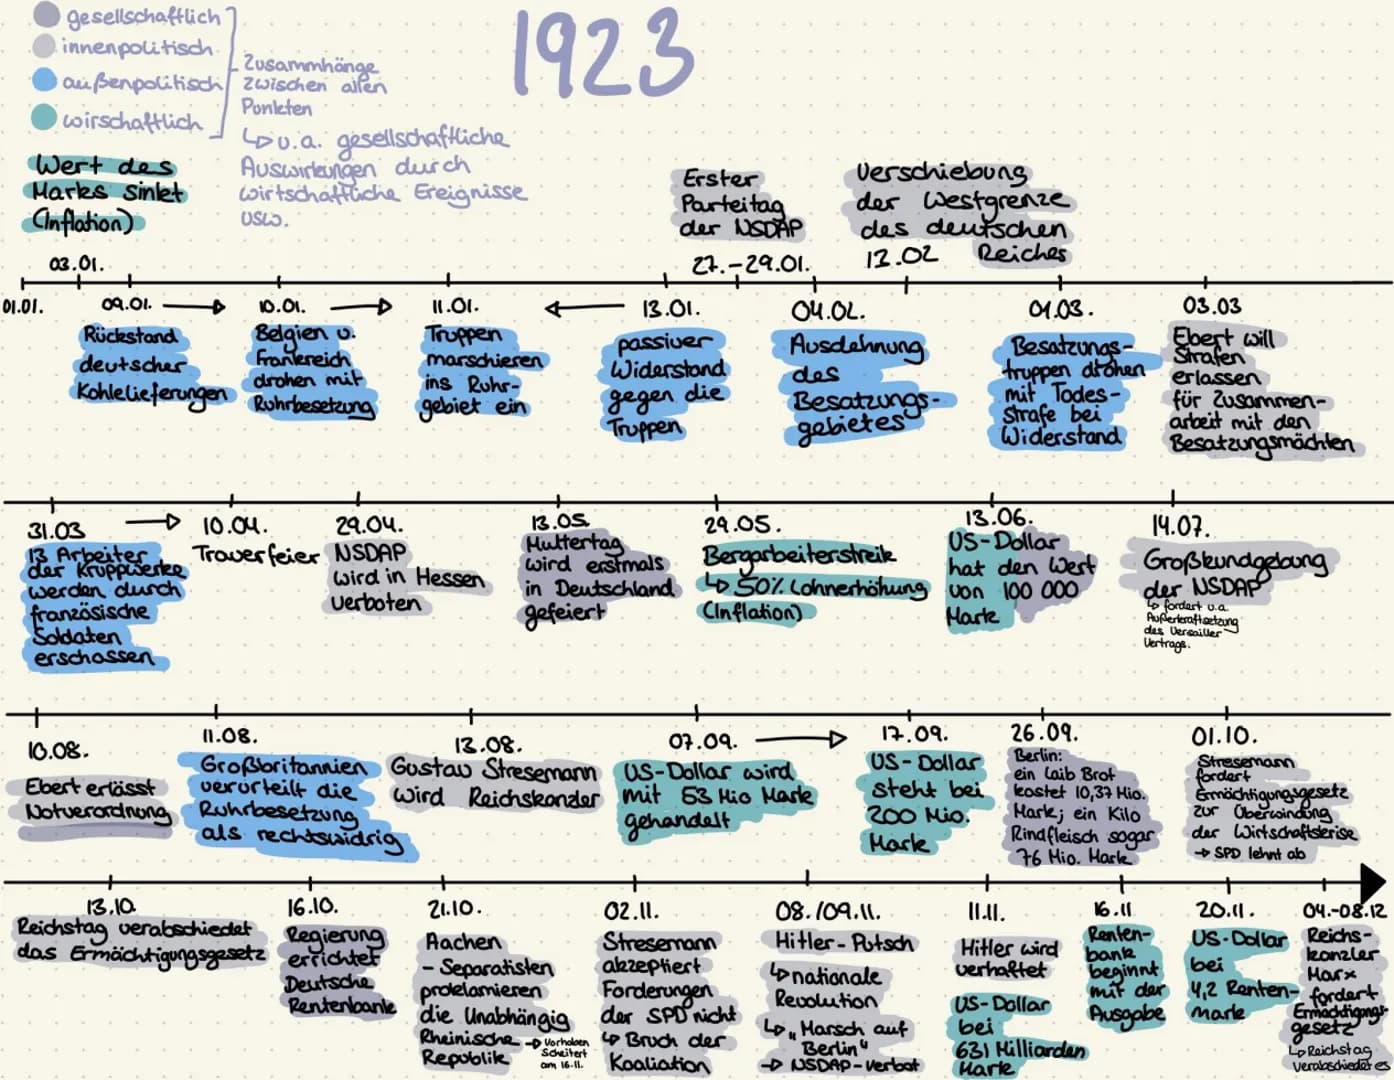 1923
gesellschaftlich
innenpolitisch
außenpolitisch
wirschaftlich
Zusammhänge
zwischen allen
Punkten
↳ u.a. gesellschaftliche
Auswirkungen durch
wirtschaftliche Ereignisse
usw.
Wert des
Marks sinkt
(Inflation)
03.01.
Erster
Parteitag
der NSDAP
27.-29.01.
Verschiebung
der Westgrenze
des deutschen
12.02 Reiches
01.01.
09.01. →
Rückstand
deutscher
Kohlelieferungen
10.01. →
Belgien u.
Frankreich
drohen mit
Ruhrbesetzung
11.01.
Truppen
marschieren
ins Ruhr-
gebiet ein
← 13.01.
passiver
Widerstand
gegen die
Truppen
04.02.
Ausdehnung
des
Besatzungs-
gebietes
01.03.
Besatzungs-
truppen drohen
mit Todes-
strafe bei
Widerstand
03.03
Ebert will
Strafen
erlassen
für Zusammen-
arbeit mit den
Besatzungsmächten
31.03 →
13 Arbeiter
der Kruppwerke
werden durch
französische
Soldaten
erschossen
10.04.
Trauerfeier
29.04.
NSDAP
wird in Hessen
verboten
13.05.
Muttertag
wird erstmals
in Deutschland
gefeiert
29.05.
Bergarbeiterstreik
↳ 50% Lohnerhöhung
(Inflation)
13.06.
US-Dollar
hat den Wert
von 100 000
Mark
14.07.
Großkundgebung
der NSDAP
↳ fordert u.a.
Außerkraftsetzung
des Versailler
Vertrags.
10.08.
Ebert erlässt
Notverordnung
11.08.
Großbritannien
verurteilt die
Ruhrbesetzung
als rechtswidrig
13.08.
Gustav Stresemann
wird Reichskanzler
07.09. →
US-Dollar wird
mit 53 Mio Mark
gehandelt
17.09.
US-Dollar
steht bei
200 Mio.
Mark
26.09.
Berlin:
ein Laib Brot
kostet 10,37 Mio.
Mark; ein Kilo
Rindfleisch sogar
76 Mio. Mark
01.10.
Stresemann
fordert
Ermächtigungsgesetz
zur Überwindung
der Wirtschaftskrise
→ SPD lehnt ab
13.10.
Reichstag verabschiedet
das Ermächtigungsgesetz
16.10.
Regierung
errichtet
Deutsche
Rentenbank
21.10.
Aachen
- Separatisten
proklamieren
die Unabhängig
Rheinische
Republik
→ Vorhaben
Scheitert
am 16.11.
02.11.
Stresemann
akzeptiert
Forderungen
der SPD nicht
↳ Bruch der
Koaliation
08./09.11.
Hitler-Putsch
↳ nationale
Revolution
↳ „Marsch auf
Berlin"
→ NSDAP-Verbot
11.11.
Hitler wird
verhaftet
US-Dollar
bei
631 Milliarden
Mark
16.11
Renten-
bank
beginnt
mit der
Ausgabe
20.11.
US-Dollar
bei
4,2 Renten-
mark
04.-08.12
Reichs-
kanzler
Marx
fordert
Ermächtigungs-
gesetz
↳ Reichstag
verabschiedet es